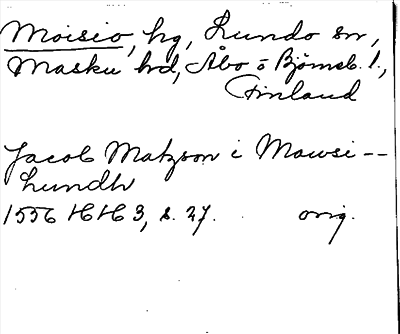 Moisio, hg, Lundo sn,
Masku hd, Åbo o Björneb. l.,
Finland
Jacob Matzson i Mawsi--
Lundh
1556 HH 3, s. 27. orig.